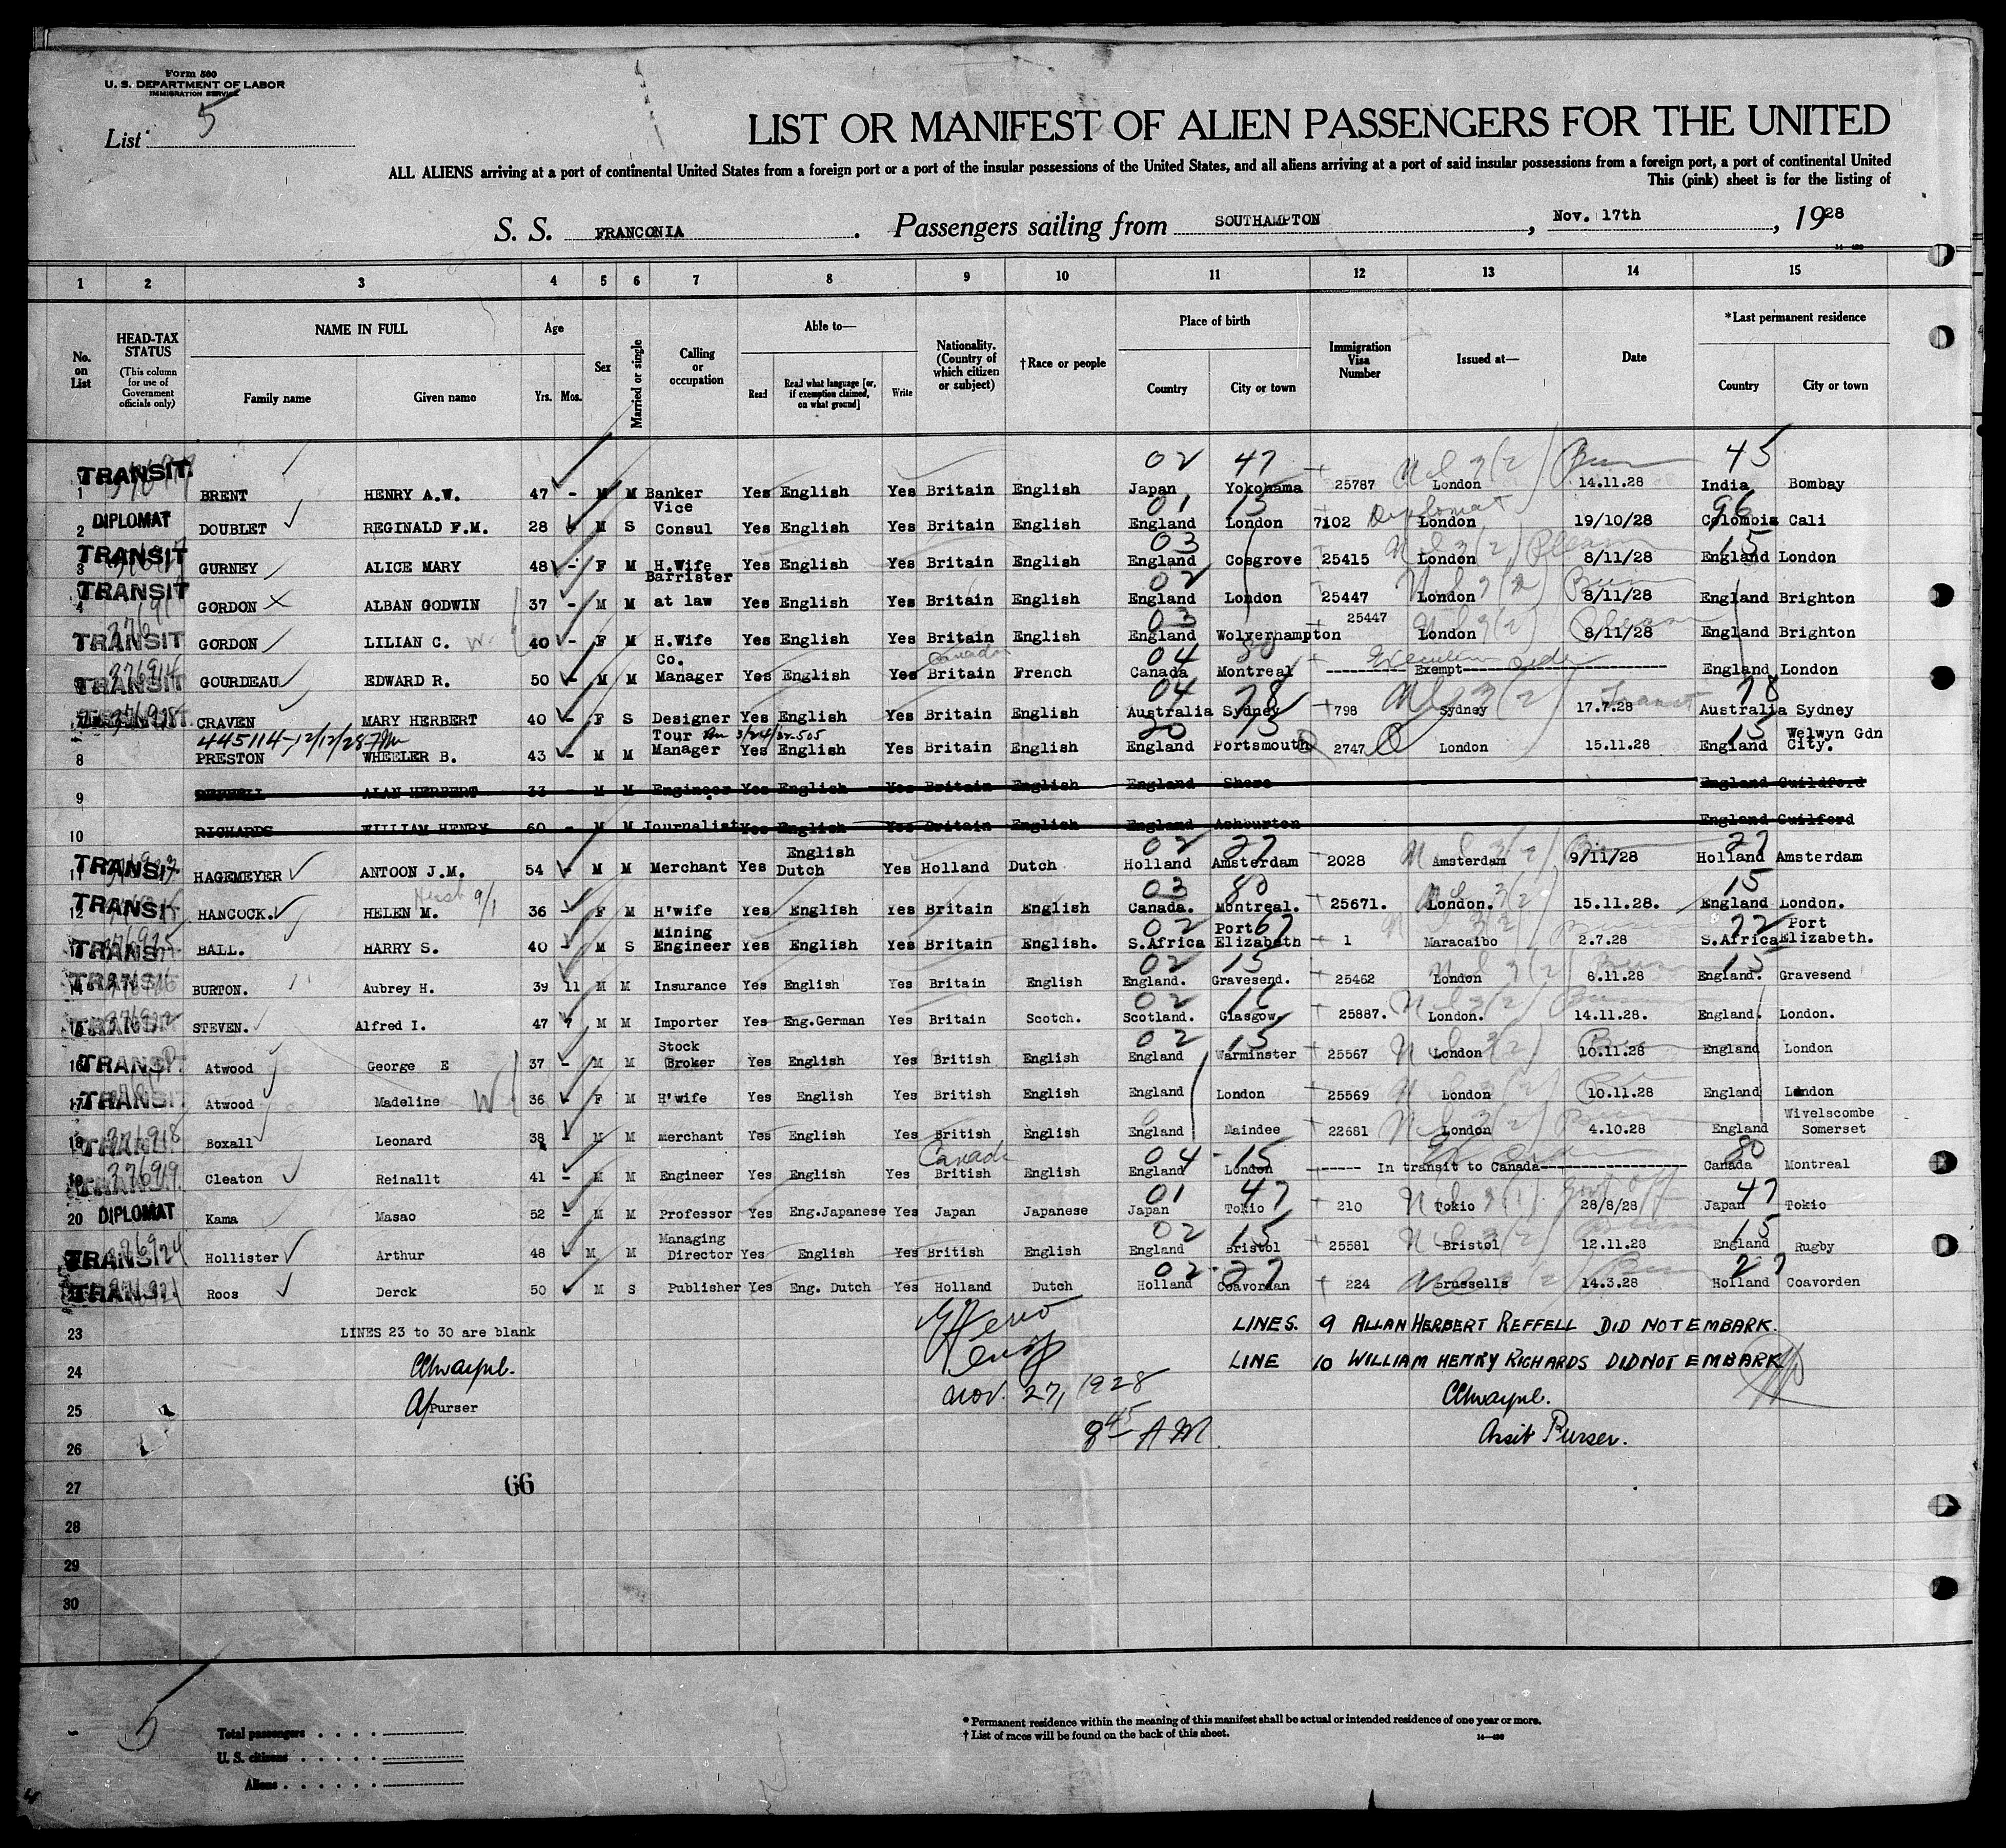 Form 500
U. S. DEPARTMENT OF LABOR
IMMIGRATION SERVICE
List 5
LIST OR MANIFEST OF ALIEN PASSENGERS FOR THE UNITED
ALL ALIENS arriving at a port of continental United States from a foreign port or a port of the insular possessions of the United States, and all aliens arriving at a port of said insular possessions from a foreign port, a port of continental United
This (pink) sheet is for the listing of
S. S. FRANCONIA. Passengers sailing from SOUTHAMPTON, Nov. 17th, 1928
1 2 3 4 5 6 7 8 9 10 11 12 13 14 15
No. on List
HEAD-TAX STATUS (This column for use of Government officials only)
NAME IN FULL Family name Given name
Age Yrs. Mos.
Sex
Married or single
Calling or occupation
Able to— Read Read what language [or, if exemption claimed, on what ground] Write
Nationality. (Country of which citizen or subject)
†Race or people
Place of birth Country City or town
Immigration Visa Number
Issued at—
Date
*Last permanent residence Country City or town
02 47 45
TRANSIT 1 BRENT HENRY A.W. 47 - M M Banker Yes English Yes Britain English Japan Yokohama 25787 London 14.11.28 India Bombay
01 15 Diplomat 96
DIPLOMAT 2 DOUBLET REGINALD F.M. 28 M S Vice Consul Yes English Yes Britain English England London 7102 London 19/10/28 Colombia Cali
03 15
TRANSIT 3 GURNEY ALICE MARY 48 - F M H.Wife Yes English Yes Britain English England Cosgrove 25415 London 8/11/28 England London
02
TRANSIT 4 GORDON ALBAN GODWIN 37 - M M Barrister at law Yes English Yes Britain English England London 25447 London 8/11/28 England Brighton
03
TRANSIT GORDON LILIAN C. W. 40 - F M H.Wife Yes English Yes Britain English England Wolverhampton 25447 London 8/11/28 England Brighton
376914 Canada 04 80
TRANSIT GOURDEAU EDWARD R. 50 - M M Co. Manager Yes English Yes Britain French Canada Montreal Exempt England London
04 78 Transit 78
CRAVEN MARY HERBERT 40 - F S Designer Yes English Yes Britain English Australia Sydney 798 Sydney 17.7.28 Australia Sydney
445114-12/12/28 20 15 15
8 PRESTON WHEELER B. 43 - M M Tour Manager Yes English Yes Britain English England Portsmouth 2747 London 15.11.28 England Welwyn Gdn City.
9 ALAN HERBERT 33 - M M Engineer Yes English Yes Britain English England Shere England Guildford
10 RICHARDS WILLIAM HENRY 60 - M M Journalist Yes English Yes Britain English England Ashburton England Guilford
02 27 27
TRANSIT 11 HAGEMEYER ANTOON J.M. 54 - M M Merchant Yes English Dutch Yes Holland Dutch Holland Amsterdam 2028 Amsterdam 9/11/28 Holland Amsterdam
03 80 15
TRANSIT 12 HANCOCK. HELEN M. 36 F M H'wife Yes English Yes Britain English Canada. Montreal. 25671. London. 15.11.28. England London.
02 67 77
TRANSIT BALL. HARRY S. 40 - M S Mining Engineer Yes English Yes Britain English. S.Africa Port Elizabeth 1 Maracaibo 2.7.28 S.Africa Port Elizabeth.
02 15 15
TRANSIT 14 BURTON. Aubrey H. 39 11 M M Insurance Yes English Yes Britain English England. Gravesend. 25462 London 8.11.28 England. Gravesend
02 16
TRANSIT 15 STEVEN. Alfred I. 47 7 M M Importer Yes Eng.German Yes Britain Scotch. Scotland. Glasgow 25887. London. 14.11.28. England. London.
02 15
TRANSIT 16 Atwood George E 37 - M M Stock Broker Yes English Yes British English England Warminster 25567 London 10.11.28 England London
TRANSIT 17 Atwood Madeline W 36 F M H'wife Yes English Yes British English England London 25569 London 10.11.28 England London
376918
TRANSIT 18 Boxall Leonard 38 - M M Merchant Yes English Yes British English England Maindee 22681 London 4.10.28 England Wivelscombe Somerset
376919 Canada 04 15 80
Cleaton Reinallt 41 - M M Engineer Yes English Yes British English England London In transit to Canada Canada Montreal
01 47 47
20 DIPLOMAT Kama Masao 52 - M M Professor Yes Eng.Japanese Yes Japan Japanese Japan Tokio 210 Tokio 28/8/28 Japan Tokio
02 15 15
TRANSIT Hollister Arthur 48 - M M Managing Director Yes English Yes British English England Bristol 25581 Bristol 12.11.28 England Rugby
02 27 27
TRANSIT Roos Derck 50 M S Publisher Yes Eng. Dutch Yes Holland Dutch Holland Coavorden 224 Brussells 14.3.28 Holland Coavorden
23 LINES 23 to 30 are blank LINES. 9 ALLAN HERBERT REFFELL DID NOT EMBARK.
24 LINE 10 WILLIAM HENRY RICHARDS DID NOT EMBARK
25 A/Purser Nov. 27, 1928
26 8 45 AM. Assit Purser.
27 66
28
29
30
5
Total passengers
U. S. citizens
Aliens
* Permanent residence within the meaning of this manifest shall be actual or intended residence of one year or more.
† List of races will be found on the back of this sheet.